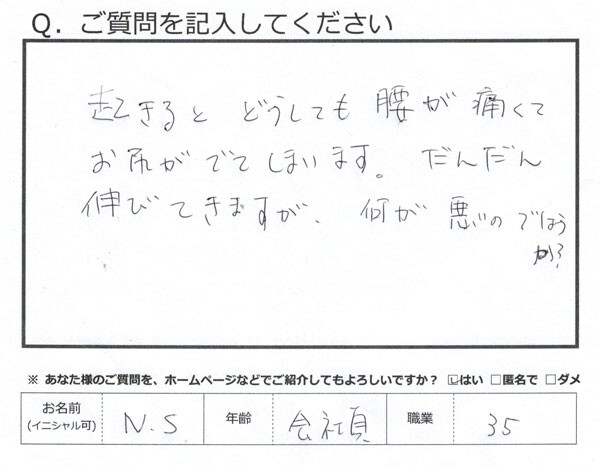 Q. ご質問を記入してください
起きると どうしても 腰が 痛くて
お尻が でて しまいます。 だんだん
伸びて きますが、 何が 悪いの でしょう
か?
※ あなた様のご質問を、ホームページなどでご紹介してもよろしいですか? ☑はい □匿名で □ダメ
お名前 (イニシャル可) N.S 年齢 会社員 職業 35